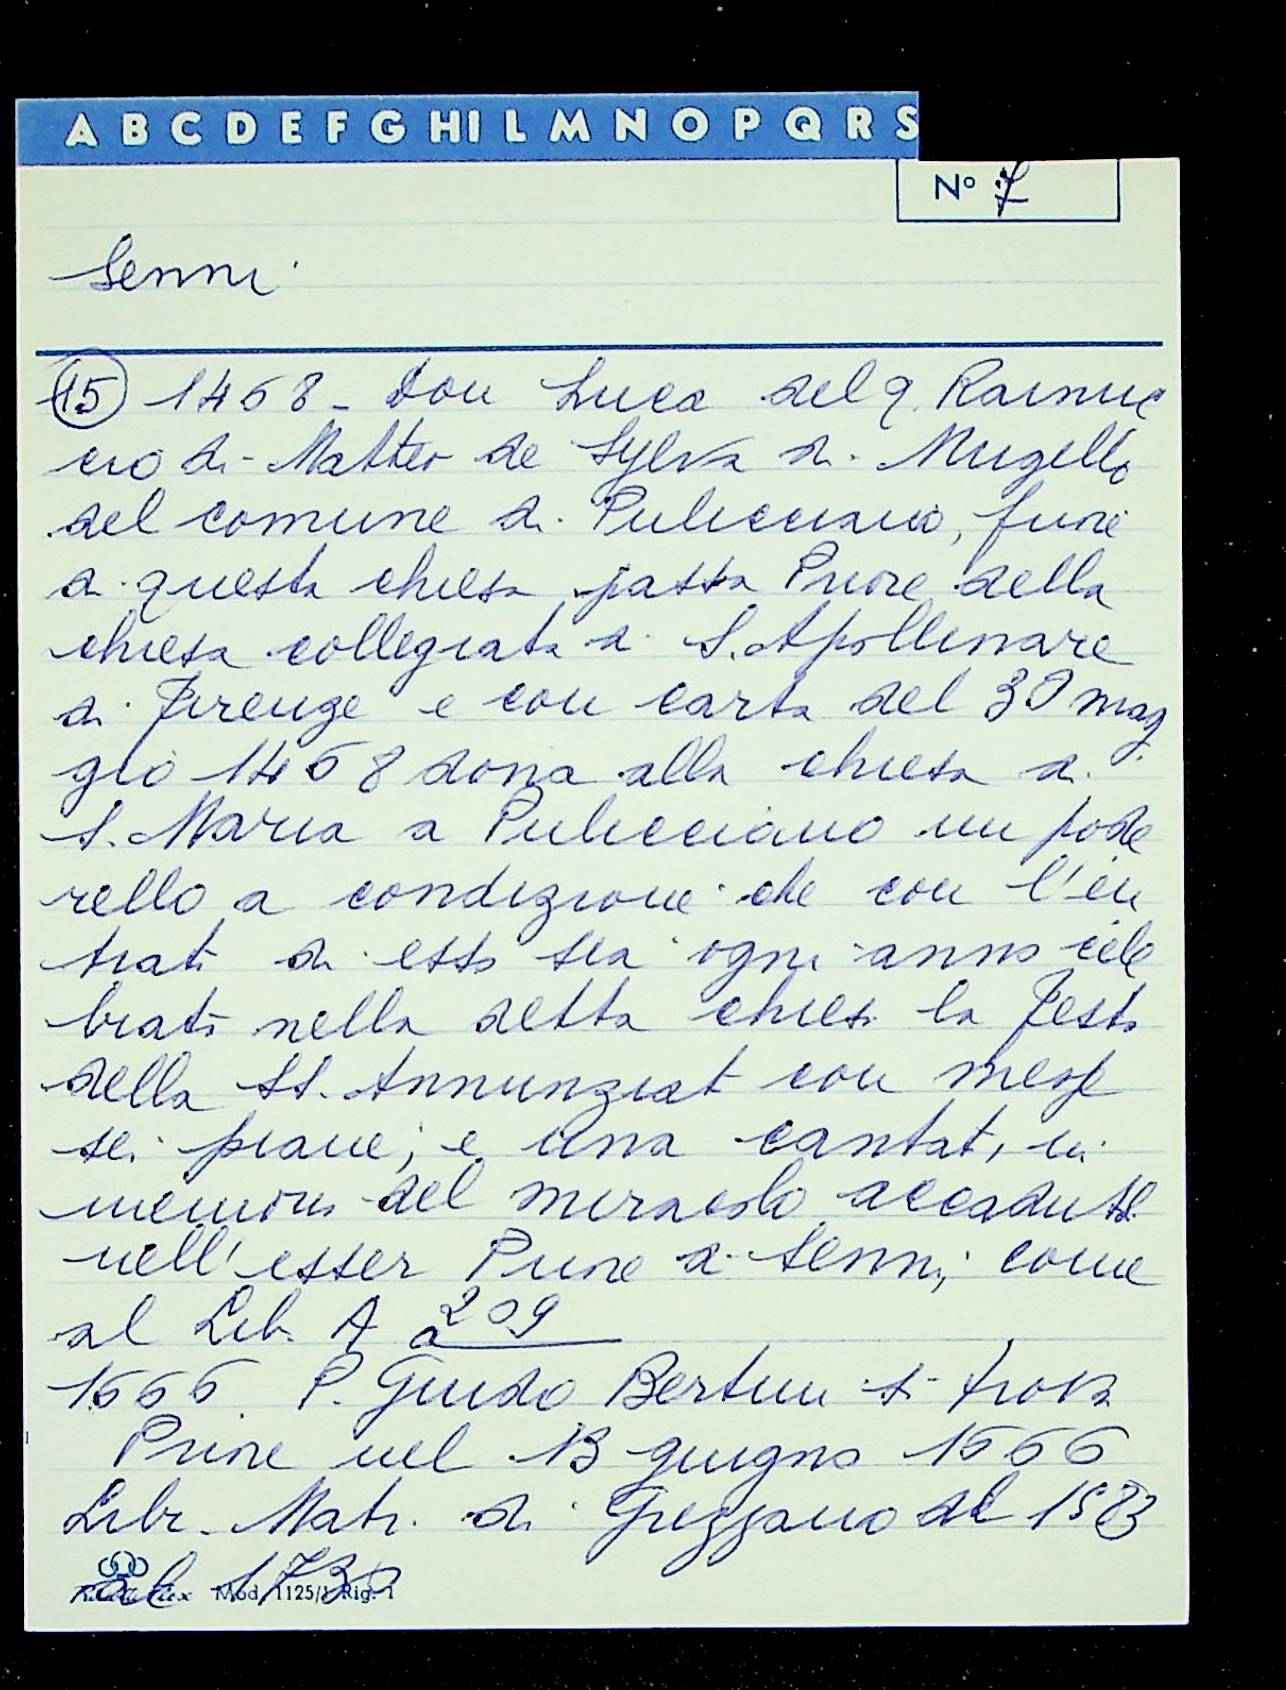 A B C D E F G HI L M N O P Q R S
Nº 7
Senni
15 1468 - Don Luca del q. Rainuc
cio di Matteo de Sylva di Mugello
del comune di Pulicciano, funé
di questa chiesa, passa Priore della
chiesa collegiata di S. Apollinare
di Firenze e con carta del 30 mag
gio 1468 dona alla chiesa di
S. Maria a Pulicciano un pode
rello a condizione che con l'en
trata di esso sia ogni anno cele
brata nella detta chiesa la Festa
della SS. Annunziata con messe
sei piane, e una cantata, in
memoria del miracolo accadutol
nell'esser Priore a Senni, come
al Lib. A a 209
1666. P. Guido Bertini si trova
Priore nel 13 giugno 1666
Libr. Matr. di Grezzano dal 1583
al 1730
Mod. 1125/1 Rig. 1